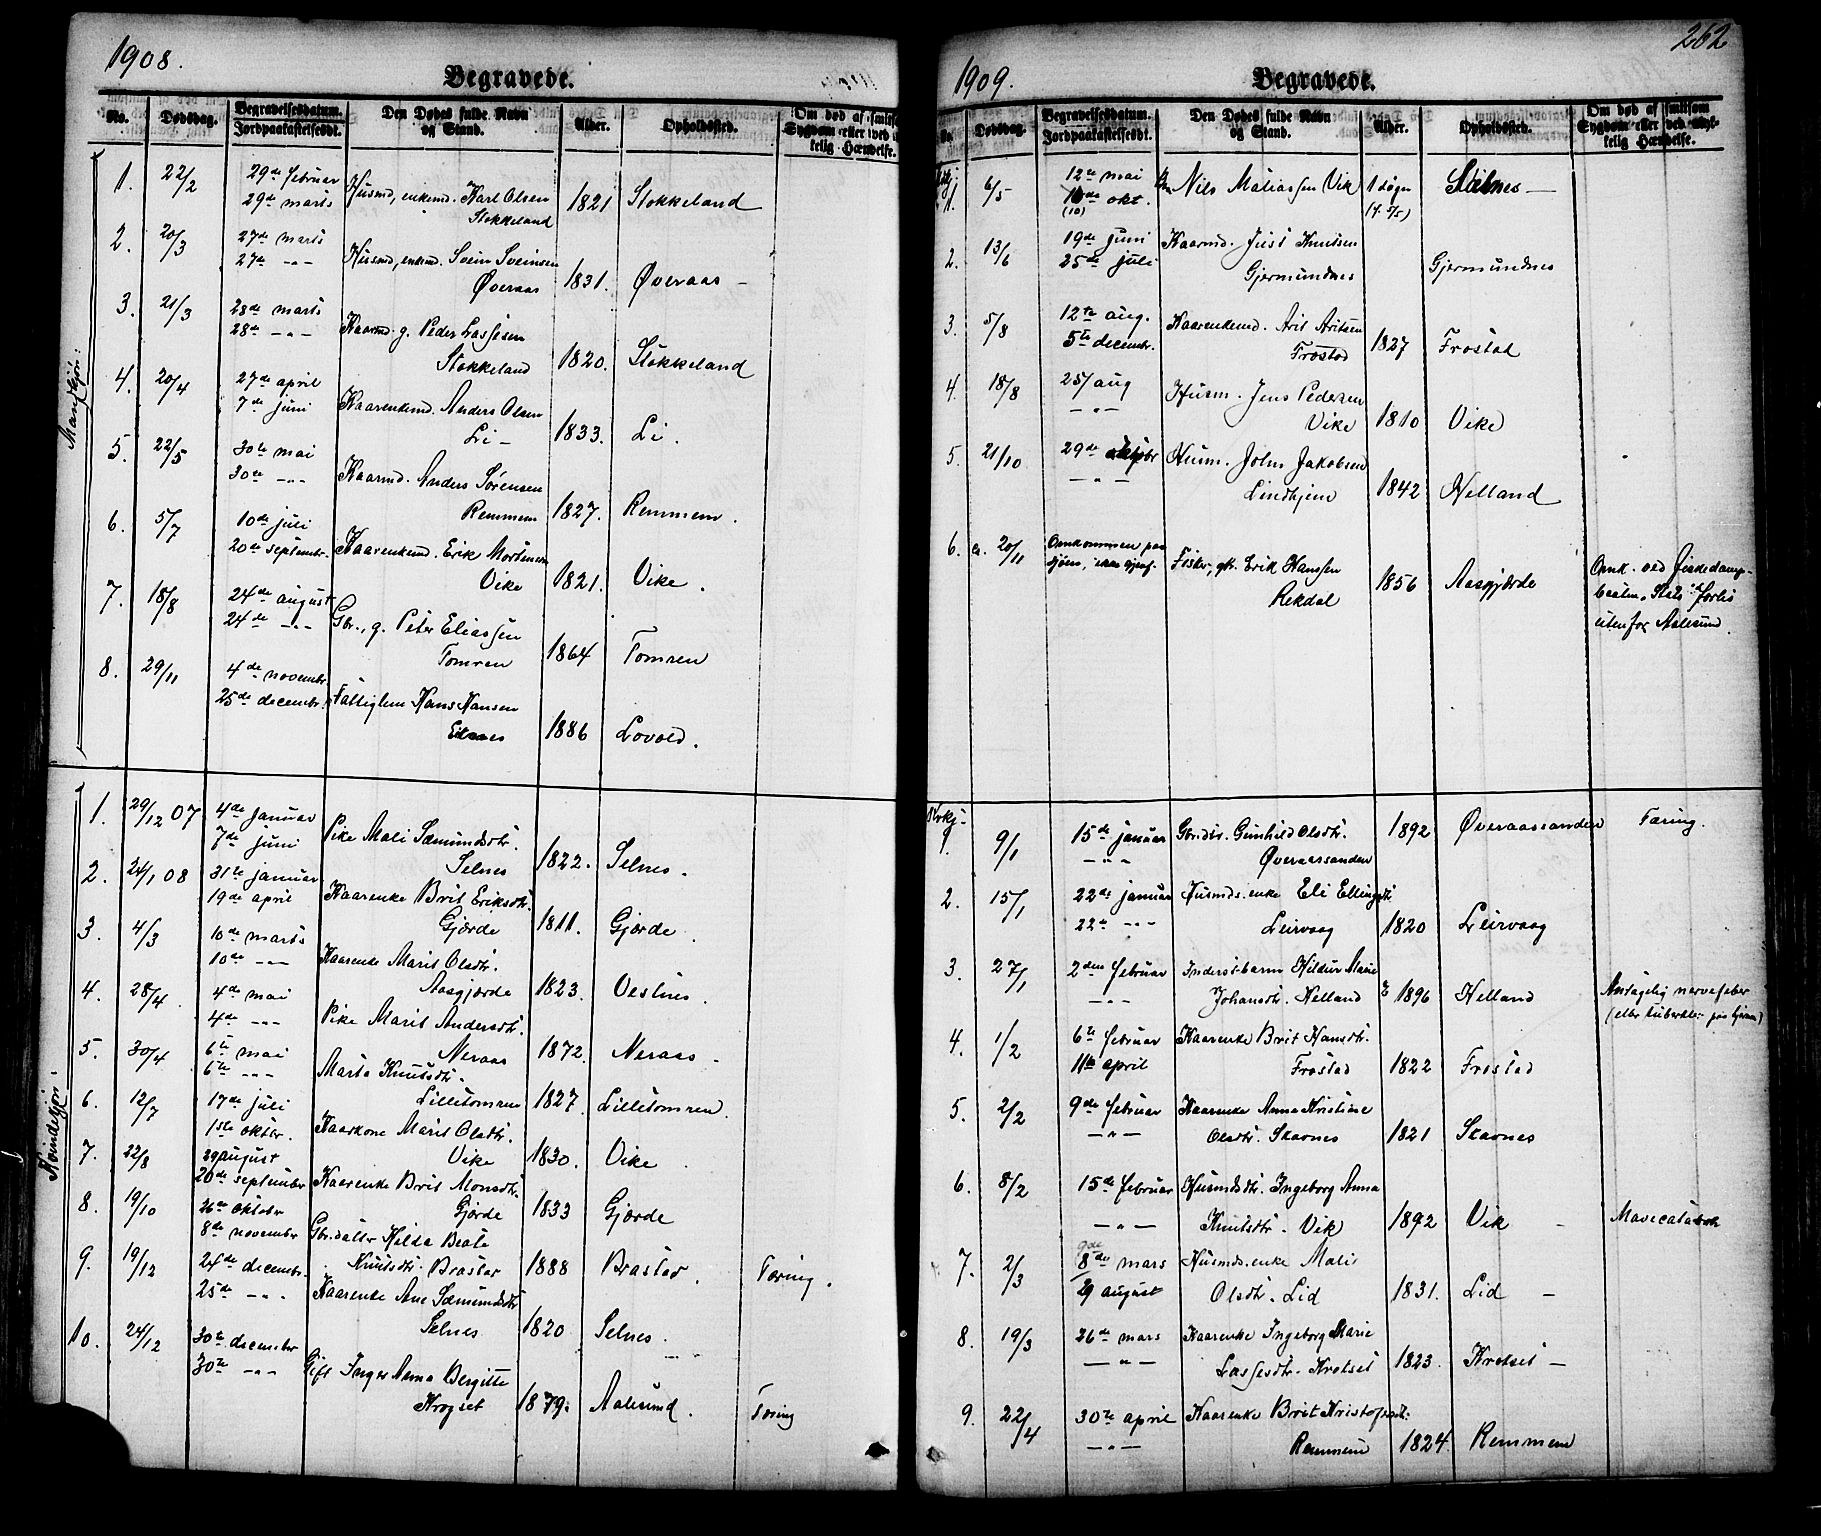 1908.
Begravede.
No. Dødsdag. Begravelsesdatum. Jordpaakastelsesdt. Den Dødes fulde Navn og Stand. Alder. Opholdssted. Om død af smitsom Sygdom eller ved ulykkelig Hændelse.
Mandkjøn:
1. 22/2 29de februar Husmd, enkemd. Karl Olsen
29de marts Stokkeland 1821 Stokkeland
2. 20/3 27de marts Husmd, enkemd. Svein Sveinsen
27de -"- Øveraas 1831. Øveraas -
3. 21/3 28de marts Kaarmd. g. Peder Lassesen
28de -"- Stokkeland 1820. Stokkeland
4. 20/4 27de april Kaarenkemd. Anders Olsen
7de juni Li - 1833. Li.
5. 22/5 30te mai Kaarmd. Anders Sørensen
30te -"- Remmem 1827. Remmem.
6. 5/7 10de juli Kaarenkemd. Erik Mortensen
20de septembr. Vike 1821. Vike.
7. 18/8 24de august Gbr., g. Peter Eliassen
24de -"- Tomren 1864 Tomren
8. 29/11 4de novembr Fattiglem Hans Hansen
25de decembr. 1886 Lovold.
Kvindekjøn:
1. 29/12 07 4de januar Pike Mali Sæmundsdtr.
7de juni Selnes 1822. Selnes.
2. 24/1 08 31te januar Kaarenke Brit Eriksdtr.
19de april Gjørde 1811. Gjørde
3. 4/3 10de marts Kaarenke Marit Olsdtr.
10de -"- Aasgjærde 1823. Vestnes.
4. 28/4 4de mai Pike Marit Andersdtr.
4de -"- Neraas 1872. Neraas -
5. 30/4 6te mai Marta Knutsdtr.
6te -"- Lilletomren 1827. Lilletomren.
6. 12/7 17de juli Kaarkone Marit Olsdtr.
1ste oktbr. Vike 1830. Vike.
7. 22/8 29 august Kaarenke Brit Monsdtr.
20de septembr Gjørde 1833 Gjørde
8. 19/10 26de oktobr Gbr.datter Hilda Beate
8de novembr Knutsdtr. Brastad 1888 Brastad. Tæring.
9. 19/12 24de decembr. Kaarenke Ane Sæmundsdtr
25de -"- Selnes 1820 Selnes.
10. 24/12 30te decembr Gift Inger Anna Bergitte
30te -"- Krogset 1879. Aalesund. Tæring
1909.
262
Begravede.
No. Dødsdag. Begravelsesdatum. Jordpaakastelsesdt. Den Dødes fulde Navn og Stand. Alder. Opholdssted. Om død af smitsom Sygdom eller ved ulykkelig Hændelse.
1. 6/5 12te mai Nils Matiassen Vik 1 døgn -
10de okt. (10) (f. 5/5)
2. 13/6 19de juni Kaarmd. Just Knutsen
25de juli Gjermundnes Gjermundnes
3. 5/8 12te aug. Kaarenkemd. Arit Aritsen
5te decembr. Frostad 1827 Frostad
4. 18/8 25/ aug Husm. Jens Pedersen
-"- Vike 1810 Vike
5. 21/10 29de oktobr Husm. John Jakobsen
-"- Lindhjem 1842 Helland
6. 20/11 Omkommen paa sjøen, ikke gjenf. Fisker, gt. Erik Hansen
Rekdal 1856 Aasgjærde Omk. ved fiskedamp-
utenfor Aalesund.
Kvkj.
1. 9/1 15de januar Gbr.dtr. Gunhild Olsdtr. 1892 Øveraassanden Tæring.
-"- Øveraassanden
2. 15/1 22de januar Husmds.enke Eli Ellingsdtr
22de -"- Leirvaag 1820 Leirvaag
3. 27/1 2den februar Inderstbarn Hildur Marie
-"- Johansdtr. Helland 1896 Helland Antagelig nervefeber
4. 1/2 6te februar Kaarenke Brit Hansdtr.
11te april Frostad 1822 Frostad
5. 2/2 9de februar Kaarenke Anna Kristine
-"- Olsdtr. Skavnes 1821 Skavnes
6. 8/2 15de februar Husmdsdtr. Ingeborg Anna
-"- Knutsdtr. Vik 1892 Vik - Mavecatarrh
7. 2/3 9de 8de mars Husmds.enke Mali
29 august Olsdtr. Lid 1831. Lid -
8. 19/3 26de mars Kaarenke Ingeborg Marie
-"- Lassesdtr. Krotset 1823. Krotset -
9. 22/4 30te april Kaarenke Brit Kristofersdtr.
-"- Remmem 1824. Remmem